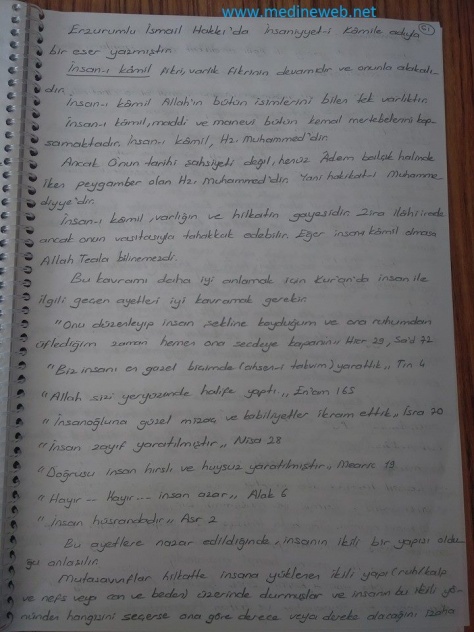 www.medineweb.net
51
Erzurumlu İsmail Hakkı'da İnsaniyyet-i Kâmile adıyla
bir eser yazmıştır.
İnsan-ı kâmil fikri, varlık fikrinin devamıdır ve onunla alakalı-
dır.
İnsan-ı kâmil Allah'ın bütün isimlerini bilen tek varlıktır.
İnsan-ı kâmil, maddi ve manevi bütün kemal mertebelerini kap-
samaktadır. İnsan-ı kâmil, Hz. Muhammed'dir.
Ancak O'nun tarihi şahsiyeti değil, henüz Adem balçık halinde
iken peygamber olan Hz. Muhammed'dir. Yani hakikat-ı Muhamme-
diyye'dir.
İnsan-ı kâmil, varlığın ve hilkatin gayesidir. Zira ilâhi irade
ancak onun vasıtasıyla tahakkuk edebilir. Eğer insanı kâmil olmasa
Allah Teala bilinemezdi.
Bu kavramı daha iyi anlamak için Kur'an'da insan ile
ilgili geçen ayetleri iyi kavramak gerekir.
"Onu düzenleyip insan şekline koyduğum ve ona ruhumdan
üflediğim zaman hemen ona secdeye kapanın" Hicr 29, Sa'd 72
"Biz insanı en güzel biçimde (ahsen-i takvim) yarattık" Tin 4
"Allah sizi yeryüzünde halife yaptı" En'am 165
"İnsanoğluna güzel mizaç ve kabiliyetler ikram ettik" İsra 70
"İnsan zayıf yaratılmıştır" Nisa 28
"Doğrusu insan hırslı ve huysuz yaratılmıştır" Mearic 19
"Hayır -- Hayır --- insan azar" Alak 6
"İnsan hüsrandadır" Asr 2
Bu ayetlere nazar edildiğinde, insanın ikili bir yapısı oldu-
ğu anlaşılır.
Mutasavvıflar hilkatte insana yüklenen ikili yapı (ruh/kalp
ve nefs veya can ve beden) üzerinde durmuşlar ve insanın bu ikili yö-
nünden hangisini seçerse ona göre derece veya dereke alacağını izaha